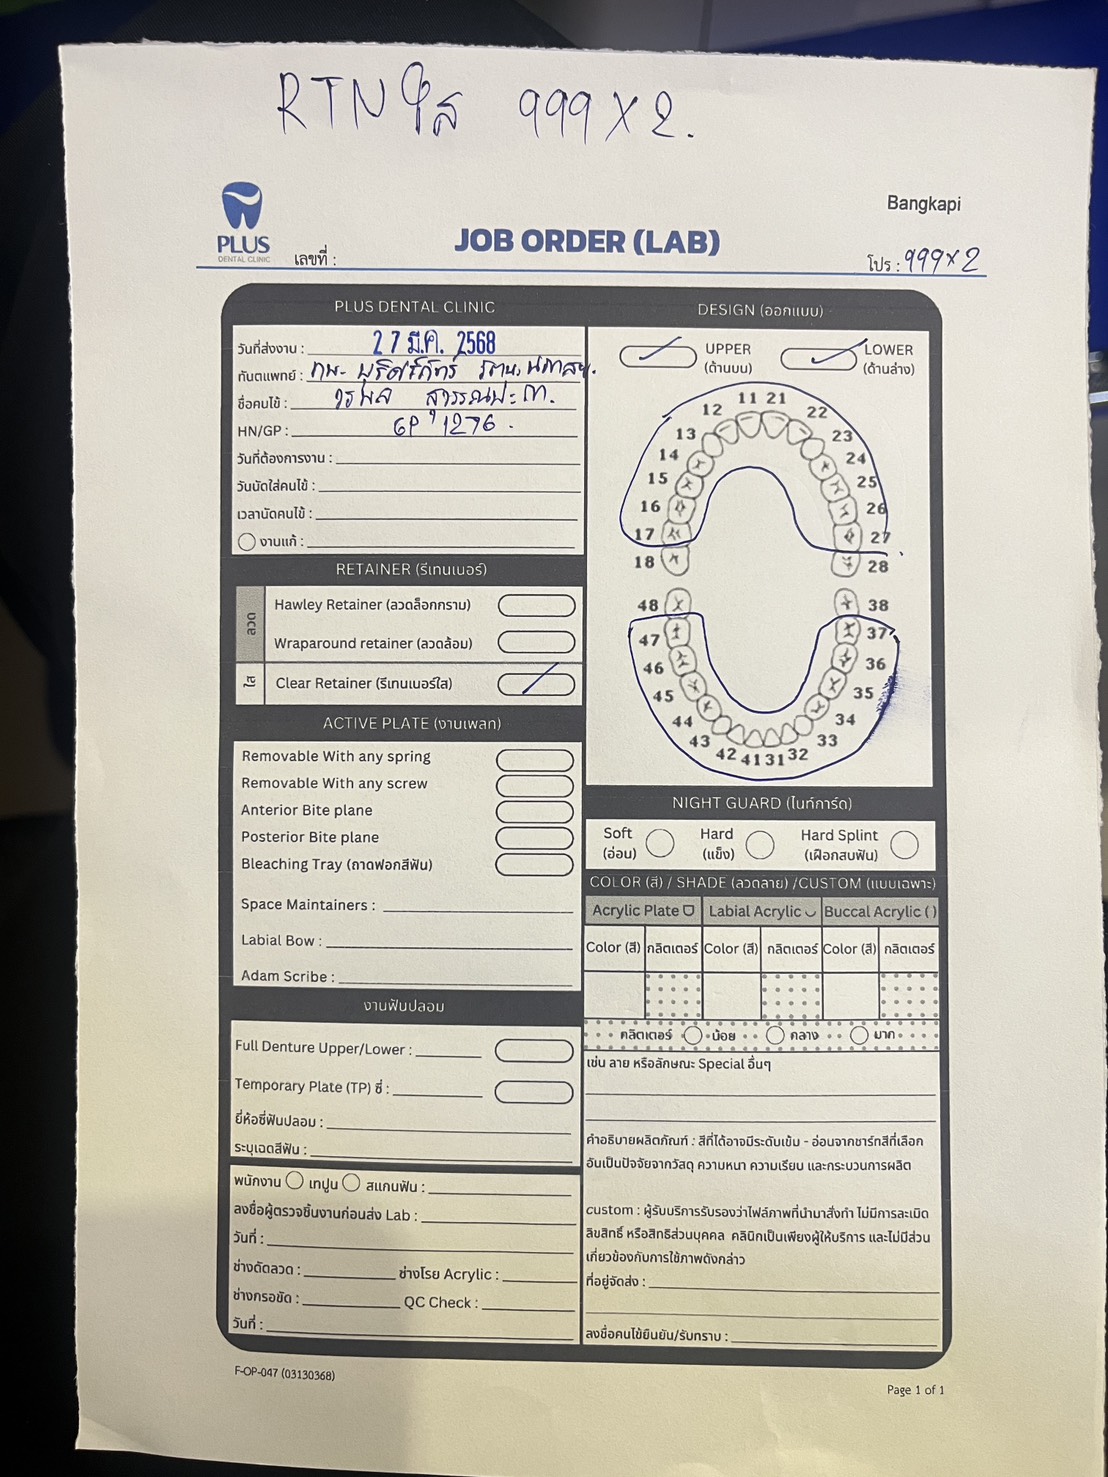 RTN ใส 999 X 2.
Bangkapi
PLUS
DENTAL CLINIC
เลขที่ :
JOB ORDER (LAB)
โปร : 999 x 2
PLUS DENTAL CLINIC
วันที่ส่งงาน : 27 มี.ค. 2568
ทันตแพทย์ : ทพ.
ชื่อคนไข้ :
HN/GP : GP 1276 .
วันที่ต้องการงาน :
วันนัดใส่คนไข้ :
เวลานัดคนไข้ :
งานแก้ :
RETAINER (รีเทนเนอร์)
ลวด
Hawley Retainer (ลวดล็อกกราม)
Wraparound retainer (ลวดล้อม)
ใส
Clear Retainer (รีเทนเนอร์ใส)
ACTIVE PLATE (งานเพลท)
Removable With any spring
Removable With any screw
Anterior Bite plane
Posterior Bite plane
Bleaching Tray (ถาดฟอกสีฟัน)
Space Maintainers :
Labial Bow :
Adam Scribe :
งานฟันปลอม
Full Denture Upper/Lower :
Temporary Plate (TP) ซี่ :
ยี่ห้อซี่ฟันปลอม :
ระบุเฉดสีฟัน :
พนักงาน เทปูน สแกนฟัน :
ลงชื่อผู้ตรวจชิ้นงานก่อนส่ง Lab :
วันที่ :
ช่างดัดลวด : ช่างโรย Acrylic :
ช่างกรอขัด : QC Check :
วันที่ :
DESIGN (ออกแบบ)
UPPER
(ด้านบน)
LOWER
(ด้านล่าง)
11 21
12 22
13 23
14 24
15 25
16 26
17 27
18 28
48 38
47 37
46 36
45 35
44 34
43 33
42 41 31 32
NIGHT GUARD (ไนท์การ์ด)
Soft
(อ่อน)
Hard
(แข็ง)
Hard Splint
(เฝือกสบฟัน)
COLOR (สี) / SHADE (ลวดลาย) /CUSTOM (แบบเฉพาะ)
Acrylic Plate Labial Acrylic Buccal Acrylic ( )
Color (สี) กลิตเตอร์ Color (สี) กลิตเตอร์ Color (สี) กลิตเตอร์
กลิตเตอร์ น้อย กลาง มาก
เช่น ลาย หรือลักษณะ Special อื่นๆ
คำอธิบายผลิตภัณฑ์ : สีที่ได้อาจมีระดับเข้ม - อ่อนจากชาร์ทสีที่เลือก
อันเป็นปัจจัยจากวัสดุ ความหนา ความเรียบ และกระบวนการผลิต
custom : ผู้รับบริการรับรองว่าไฟล์ภาพที่นำมาสั่งทำ ไม่มีการละเมิด
ลิขสิทธิ์ หรือสิทธิส่วนบุคคล คลินิกเป็นเพียงผู้ให้บริการ และไม่มีส่วน
เกี่ยวข้องกับการใช้ภาพดังกล่าว
ที่อยู่จัดส่ง :
ลงชื่อคนไข้ยืนยัน/รับทราบ :
F-OP-047 (03130368)
Page 1 of 1